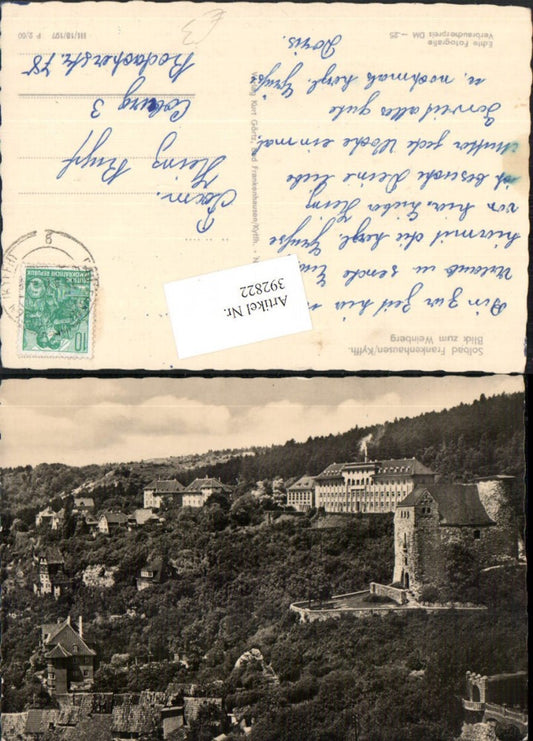 Solbad Frankenhausen/Kyffh.
Blick zum Weinberg
Bin zur Zeit hier in
Urlaub u. sende Euch
hiermit die herzl. Grüße
von hier. Lieber Heinz
ich besuche Deine liebe
Mutter jede Woche einmal
Derweil alles gute
u. nochmals herzl. Grüße
Doris.
Fam.
Heinz Rupf
Coburg 3
Rodacherstr. 78
Kurt Görtz, Bad Frankenhausen/Kyffh.
Echte Fotografie
Verbraucherpreis DM -.25
III/18/197
DEUTSCHE DEMOKRATISCHE REPUBLIK
10
8
Artikel Nr.
392822
£3